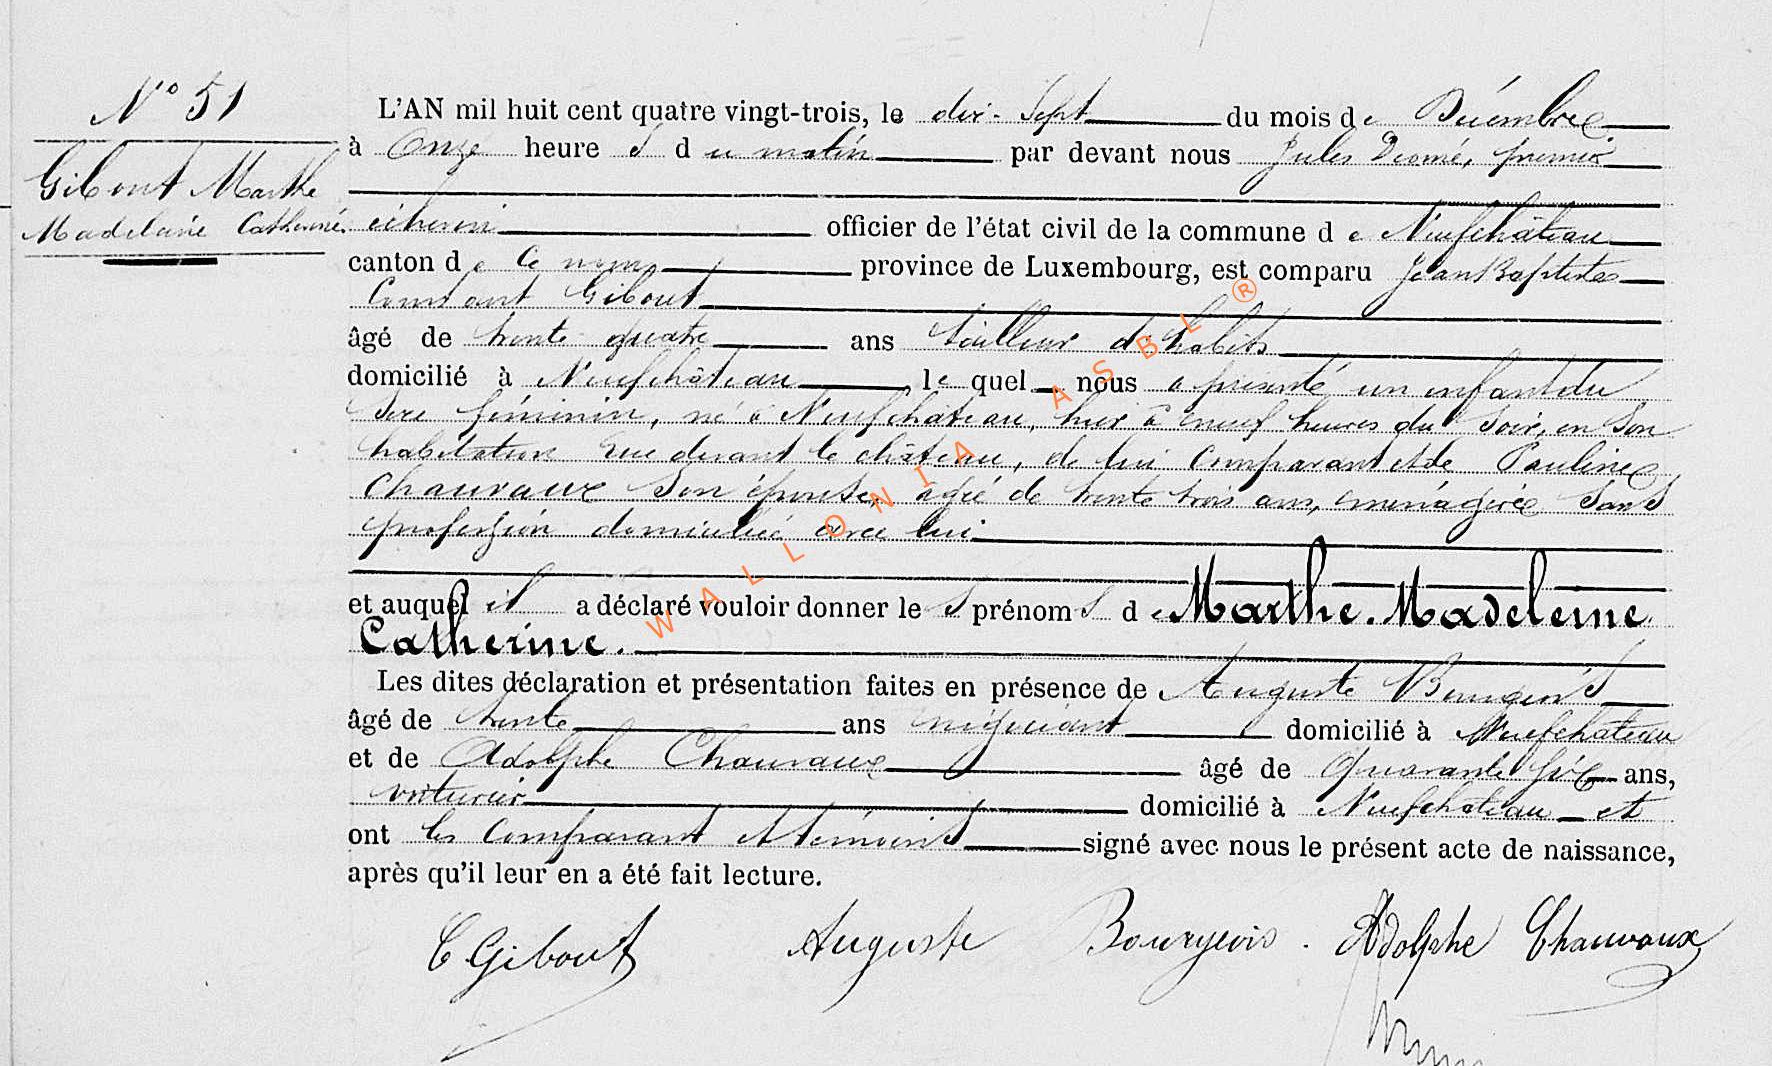 N° 51
Gibout Marthe
Madeleine Catherine
L'AN mil huit cent quatre vingt-trois, le dix-Sept du mois de Décembre
à Onze heures du matin par devant nous Jules Diomé, premier
échevin officier de l'état civil de la commune de Neufchâteau
canton de Ce nom province de Luxembourg, est comparu Jean Baptiste
Constant Gibout
âgé de trente quatre ans tailleur d'habits
domicilié à Neufchâteau lequel nous a présenté un enfant du
Sexe féminin, né à Neufchâteau, hier à neuf heures du Soir, en Son
habitation rue devant le château, de lui Comparant et de Pauline
Chauvaux Son épouse, agée de trente trois ans, ménagère Sans
profession domiciliée avec lui
et auquel il a déclaré vouloir donner les prénoms de Marthe. Madeleine
Catherine.
Les dites déclaration et présentation faites en présence de Auguste Bourgeois
âgé de trente ans négociant domicilié à Neufchateau
et de Adolphe Chauvaux âgé de quarante Six ans,
voiturier domicilié à Neufchateau et
ont les Comparant et témoins signé avec nous le présent acte de naissance,
après qu'il leur en a été fait lecture.
C Gibout Auguste Bourgeois. Adolphe Chauvaux
WALLONIA ASBL ®